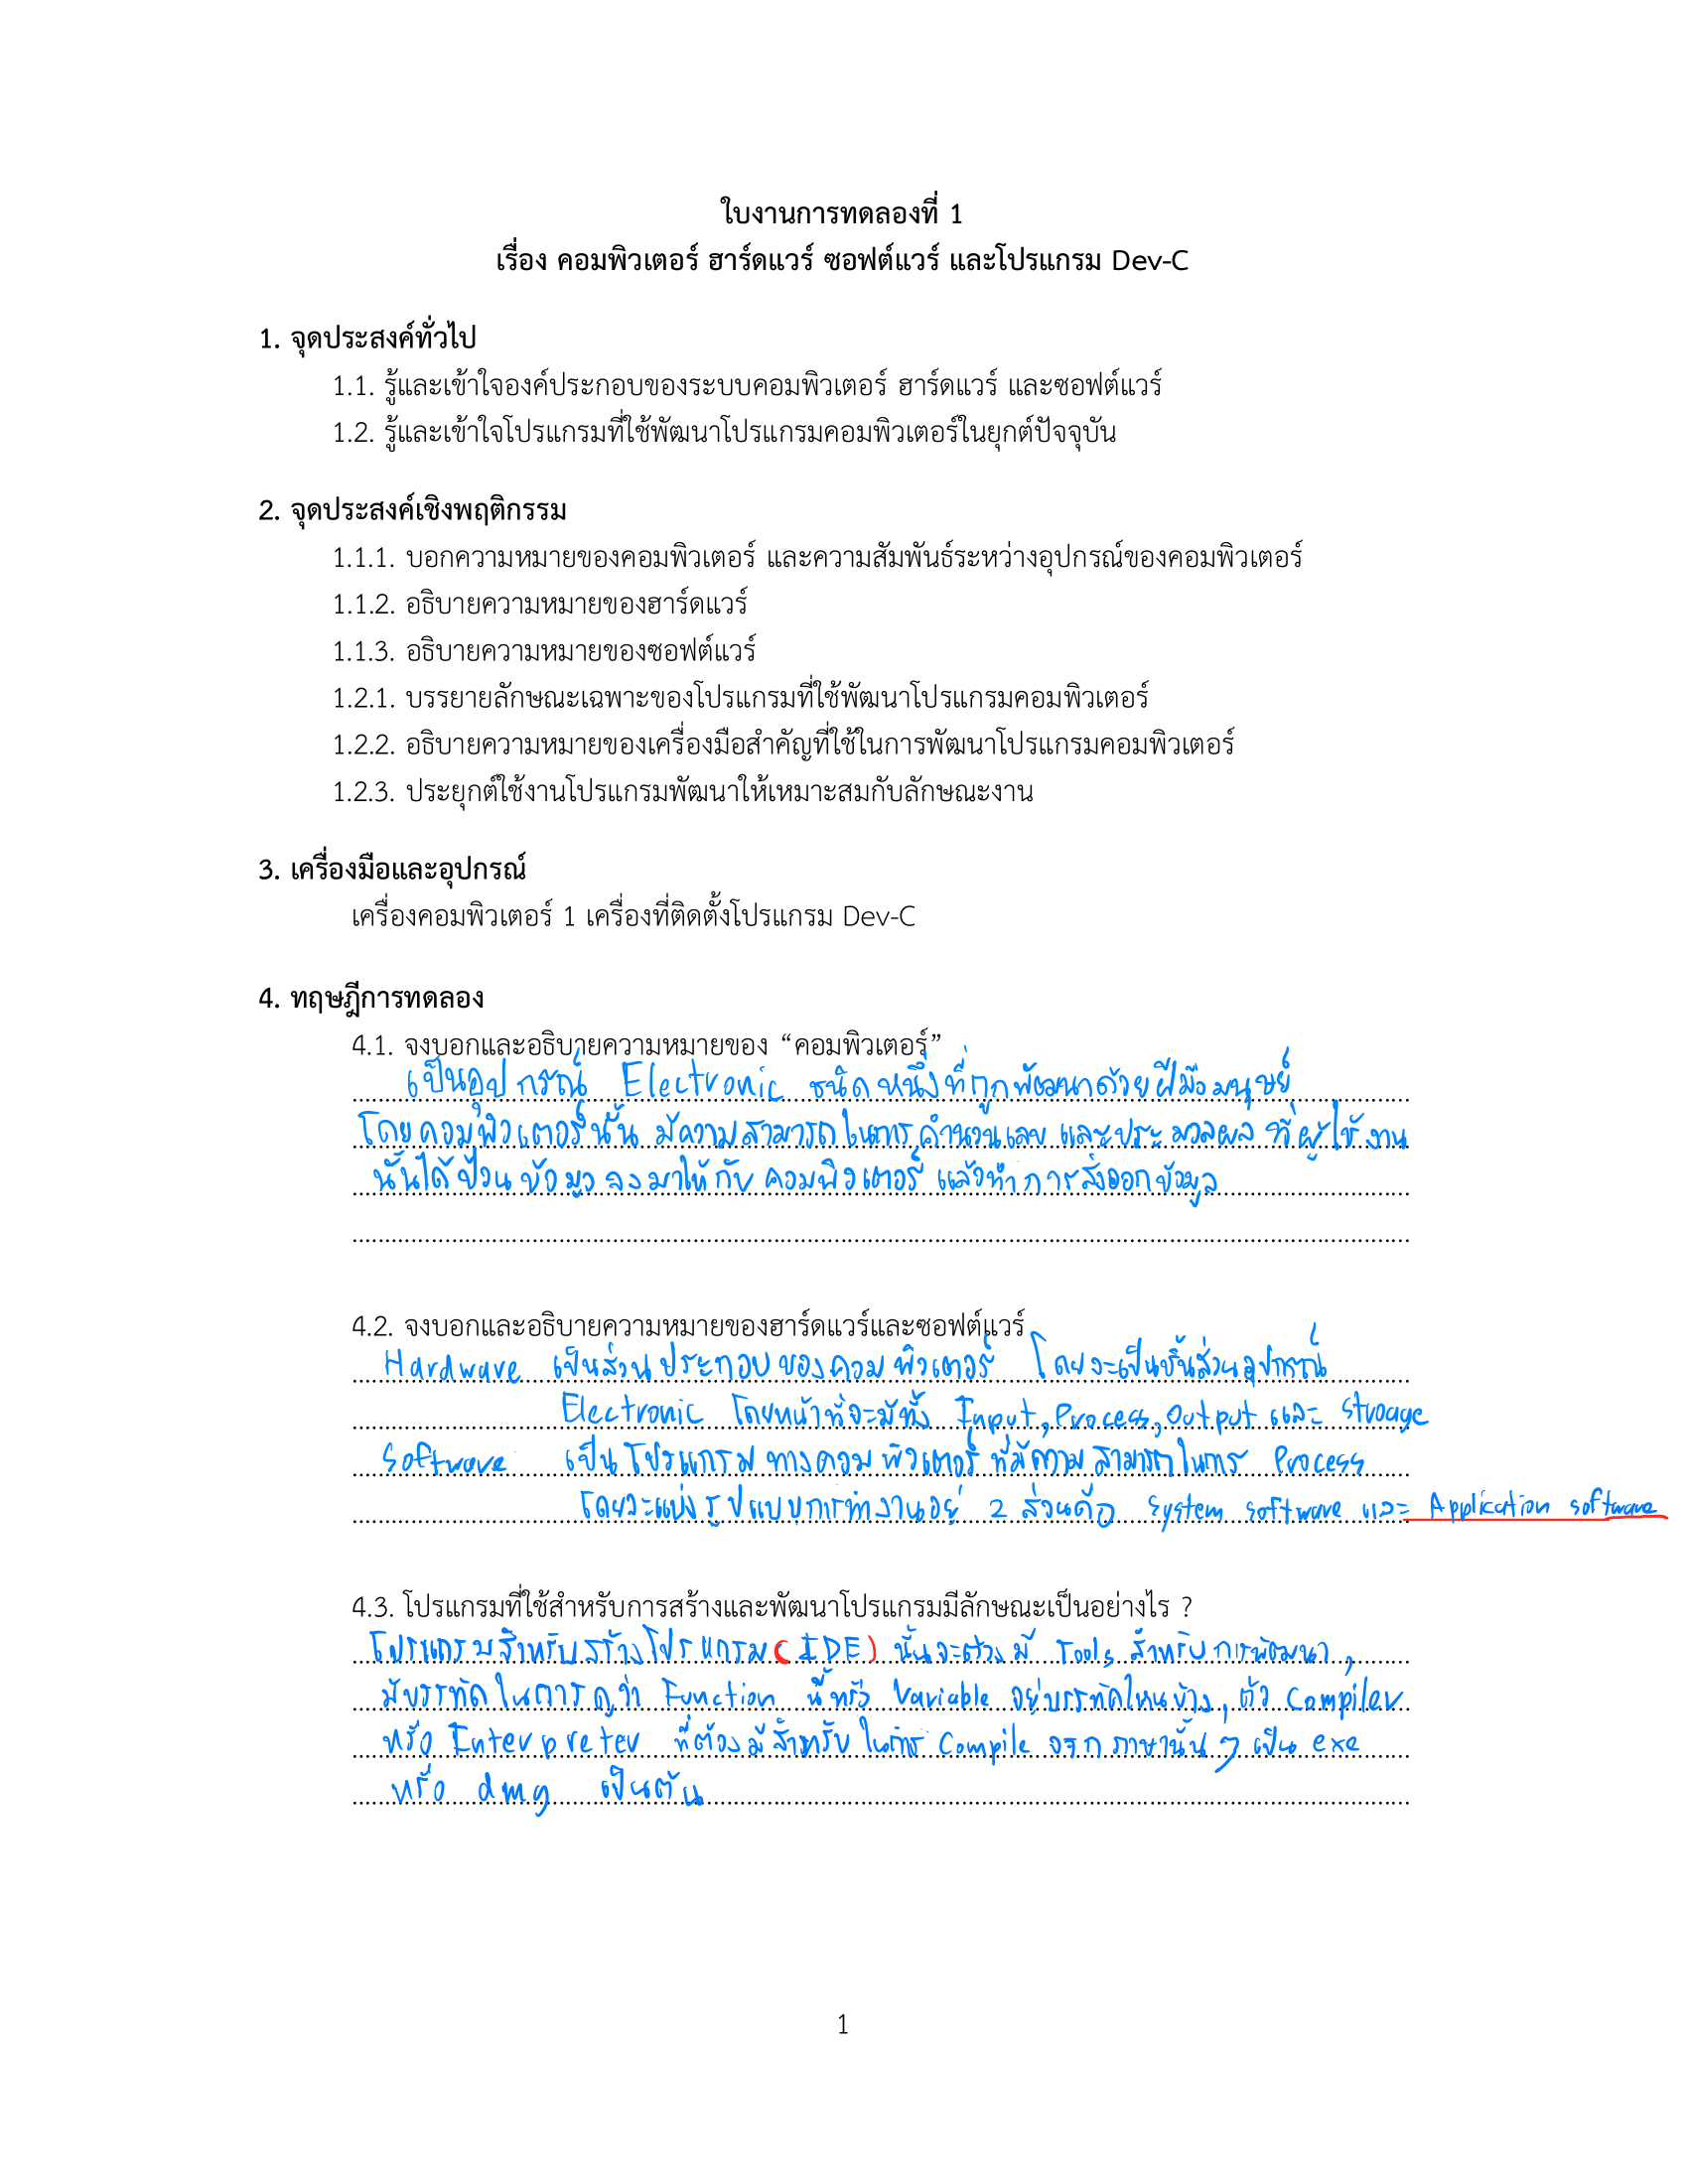 ใบงานการทดลองที่ 1
เรื่อง คอมพิวเตอร์ ฮาร์ดแวร์ ซอฟต์แวร์ และโปรแกรม Dev-C
1. จุดประสงค์ทั่วไป
1.1. รู้และเข้าใจองค์ประกอบของระบบคอมพิวเตอร์ ฮาร์ดแวร์ และซอฟต์แวร์
1.2. รู้และเข้าใจโปรแกรมที่ใช้พัฒนาโปรแกรมคอมพิวเตอร์ในยุกต์ปัจจุบัน
2. จุดประสงค์เชิงพฤติกรรม
1.1.1. บอกความหมายของคอมพิวเตอร์ และความสัมพันธ์ระหว่างอุปกรณ์ของคอมพิวเตอร์
1.1.2. อธิบายความหมายของฮาร์ดแวร์
1.1.3. อธิบายความหมายของซอฟต์แวร์
1.2.1. บรรยายลักษณะเฉพาะของโปรแกรมที่ใช้พัฒนาโปรแกรมคอมพิวเตอร์
1.2.2. อธิบายความหมายของเครื่องมือสำคัญที่ใช้ในการพัฒนาโปรแกรมคอมพิวเตอร์
1.2.3. ประยุกต์ใช้งานโปรแกรมพัฒนาให้เหมาะสมกับลักษณะงาน
3. เครื่องมือและอุปกรณ์
เครื่องคอมพิวเตอร์ 1 เครื่องที่ติดตั้งโปรแกรม Dev-C
4. ทฤษฎีการทดลอง
4.1. จงบอกและอธิบายความหมายของ “คอมพิวเตอร์”
เป็นอุปกรณ์ Electronic ชนิดหนึ่งที่ถูกพัฒนาด้วยฝีมือมนุษย์
โดยคอมพิวเตอร์นั้น มีความสามารถในการคำนวนเลข และประมวลผล ที่ผู้ใช้งาน
นั้นได้ป้อนข้อมูลลงมาให้กับคอมพิวเตอร์ แล้วทำการส่งออกข้อมูล
4.2. จงบอกและอธิบายความหมายของฮาร์ดแวร์และซอฟต์แวร์
Hardware เป็นส่วนประกอบของคอมพิวเตอร์ โดยจะเป็นชิ้นส่วนอุปกรณ์
Electronic โดยหน้าที่จะมีทั้ง Input, Process, Output และ Stroage
Software เป็นโปรแกรมทางคอมพิวเตอร์ ที่มีความสามารถในการ Process
โดยจะแบ่งรูปแบบการทำงานอยู่ 2 ส่วนคือ System software และ Application software
4.3. โปรแกรมที่ใช้สำหรับการสร้างและพัฒนาโปรแกรมมีลักษณะเป็นอย่างไร ?
โปรแกรมสำหรับสร้างโปรแกรม (IDE) นั้นจะต้องมี Tools สำหรับการพัฒนา,
มีบรรทัดในการดูว่า Function นี้หรือ Variable อยู่บรรทัดไหนบ้าง, ตัว Compiler
หรือ Interpreter ที่ต้องมีสำหรับในการ Compile จากภาษานั้นๆ เป็น exe
หรือ dmg เป็นต้น
1